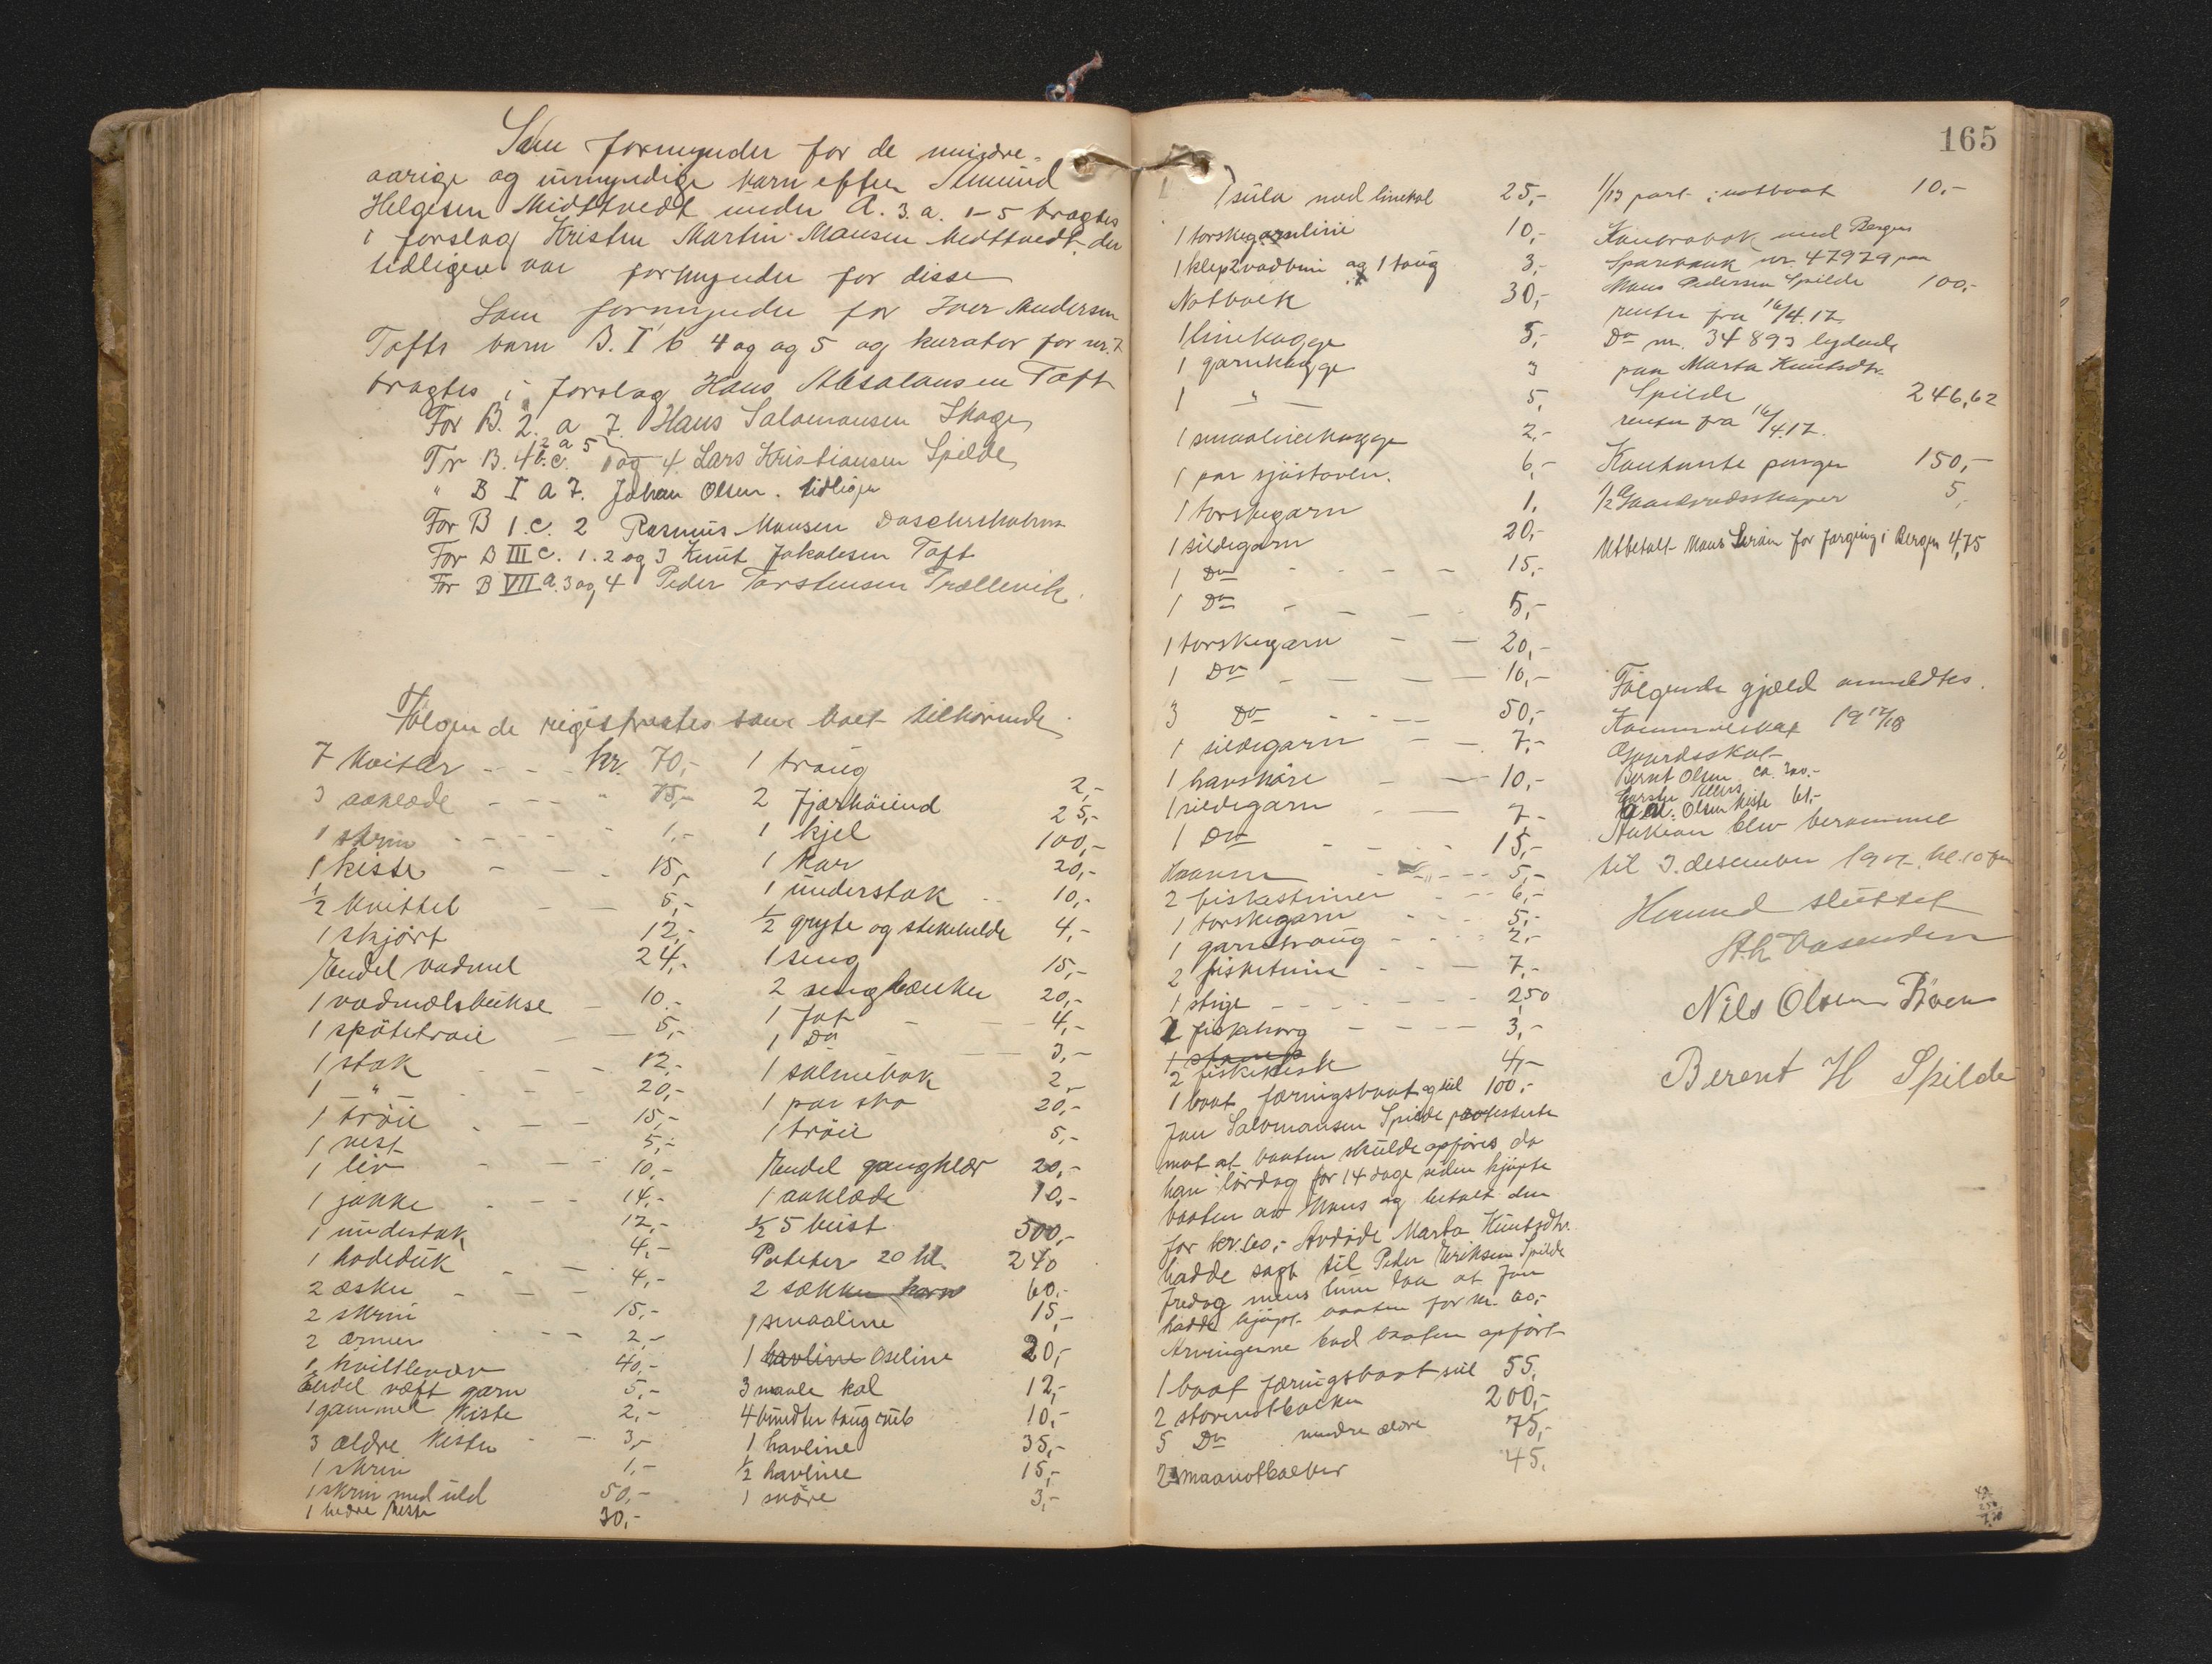 Som formynder for de mindre-
aarige og umyndige barn efter Amund
Helgesen Midttvedt under A. 3. a. 1-5 bragtes
i forslag Kristen Martin Monsen Midttvedt, der
tidligere var formynder for disse
Som formynder for Iver Andersen
Tofts barn B. I b 4 og og 5 og kurator for nr. 7
bragtes i forslag Hans Absalonsen Toft
For B. 2. a 7. Hans Salomonsen Skage
For B. 4 b. c. 1 og 4. Lars Kristiansen Spilde
" B I a 7. Johan Olsen. tidligere
For B 1. c. 2 Rasmus Monsen
For B III c. 1. 2 og 3 Knut Jakobsen Toft
For B VII a. 3 og 4 Peder Torstensen Trællevik.
Følgende registrertes som boet tilhørende.
7 kvitler - - - kr. 70,-
3 aaklæde - - - " 75,-
1 skrin - - - - 1,-
1 kiste - - - 15,-
1/2 kvittel - - 5,-
1 skjört 12,-
Endel vadmel 24,-
1 vadmelsbukse - 10.-
1 spötetroie - - 5,-
1 stak - - - 12,-
1 - " - - - 20,-
1 tröie - - - 15,-
1 vest 5,-
1 liv - - - 10,-
1 jakke - - - 14,-
1 understak 12,-
1 hodeduk 4,-
2 æsker - - - 4,-
2 skrin 15,-
2 ærmer - - - 2,-
1/2 kvittlevær 40,-
Endel væft garn 5,-
1 gammel kiste 2,-
3 ældre kister - - 3,-
1 skrin 1,-
1 skrin med uld 50,-
1 bedre kiste 30,-
1 traug 2,-
2 fjærhöiend 25,-
1 kjel 100,-
1 kar 20,-
1 understak - - 10,-
1/2 gryte og stekehelde 4,-
1 seng 15,-
2 sengbænker 20,-
1 fat - - - 4,-
1 Do - - - 3,-
1 salmebok 2,-
1 par sko 20,-
1 tröie 5,-
Endel gangklær 20,-
1 aaklæde 10,-
1/2 5 beist 500,-
Poteter 20 hl. 240
2 sækker korn 60.-
1 smaaline 15,-
1 havline Oseline 20,-
3 maale kol 12,-
4 bundter taug 10,-
1 havline 35,-
1/2 havline 15,-
1 snöre 3,-
165
1 sula med linekol 25,-
1 torskegarnlinie 10,-
1 klep 2 vadbein og 1 taug 3,-
Notbolk 30,-
1 linekagge 5,-
1 garnkagge 3
1 - " - 5,
1 smaalinekagge 2,-
1 par sjöstövler. 6,-
1 torskegarn 1,
1 sildegarn 20,-
1 Do - - - - 15,-
1 Do - - - - 5,-
1 torskegarn - - 20,-
1 Do - - - - 10,-
3 Do - - - 50,-
1 sildegarn - - 7,-
1 havsnöre - - 10,-
1 sildegarn - 7,-
1 Do - - - - 15,-
- - - - 5,-
2 fiskestimer - - 6,-
1 torskegarn - - - 5,-
1 garntraug - - - 2,-
2 fisketuin - - - 7,-
1 stige - - - - - 2,50
2 fiskekorg - - - - 3,-
1 stamp
2 fiskekisk 4,-
1 baat færingsbaat og seil 100,-
Jan Salomonsen Spilde protesterte
mot at baaten skulde opföres da
han lördag for 14 dage siden kjöpte
baaten av Mons og betalt den
for kr. 60,- Avdöde Marta Knutsdtr.
hadde sagt til Peder Eriksen Spilde
fredag mens hun laa at Jan
hadde kjöpt baaten for kr. 60,-
Arvingerne bad baaten opfört
1 baat færingsbaat seil 55,
2 stornotbolker 200,-
5 Do mindre ældre 75,-
2 smaanotbolker 45.
1/13 part i notbaat 10,-
Kontrabok med Bergens
Sparebank nr 47979 paa
Mons Pedersen Spilde 100,-
renter fra 16/4.17.
Do nr. 34893 lydende
paa Marta Knutsdtr.
Spilde 246,62
renter fra 16/4.17.
Kontante penger 150,-
1/2 Gaardsredskaper 5,
Utbetalt Mons for farging i Bergen 4,75
Fölgende gjæld anmeldtes.
Kommuneskat 1917/18
Gaardsskat
Bernt Olsen ca. 300.-
Olsen kiste 61,-
Auktion blev berammet
til 3. desember 1917 kl. 10 fm
Hermed sluttet
Nils Olsen Böen
Berent H Spilde